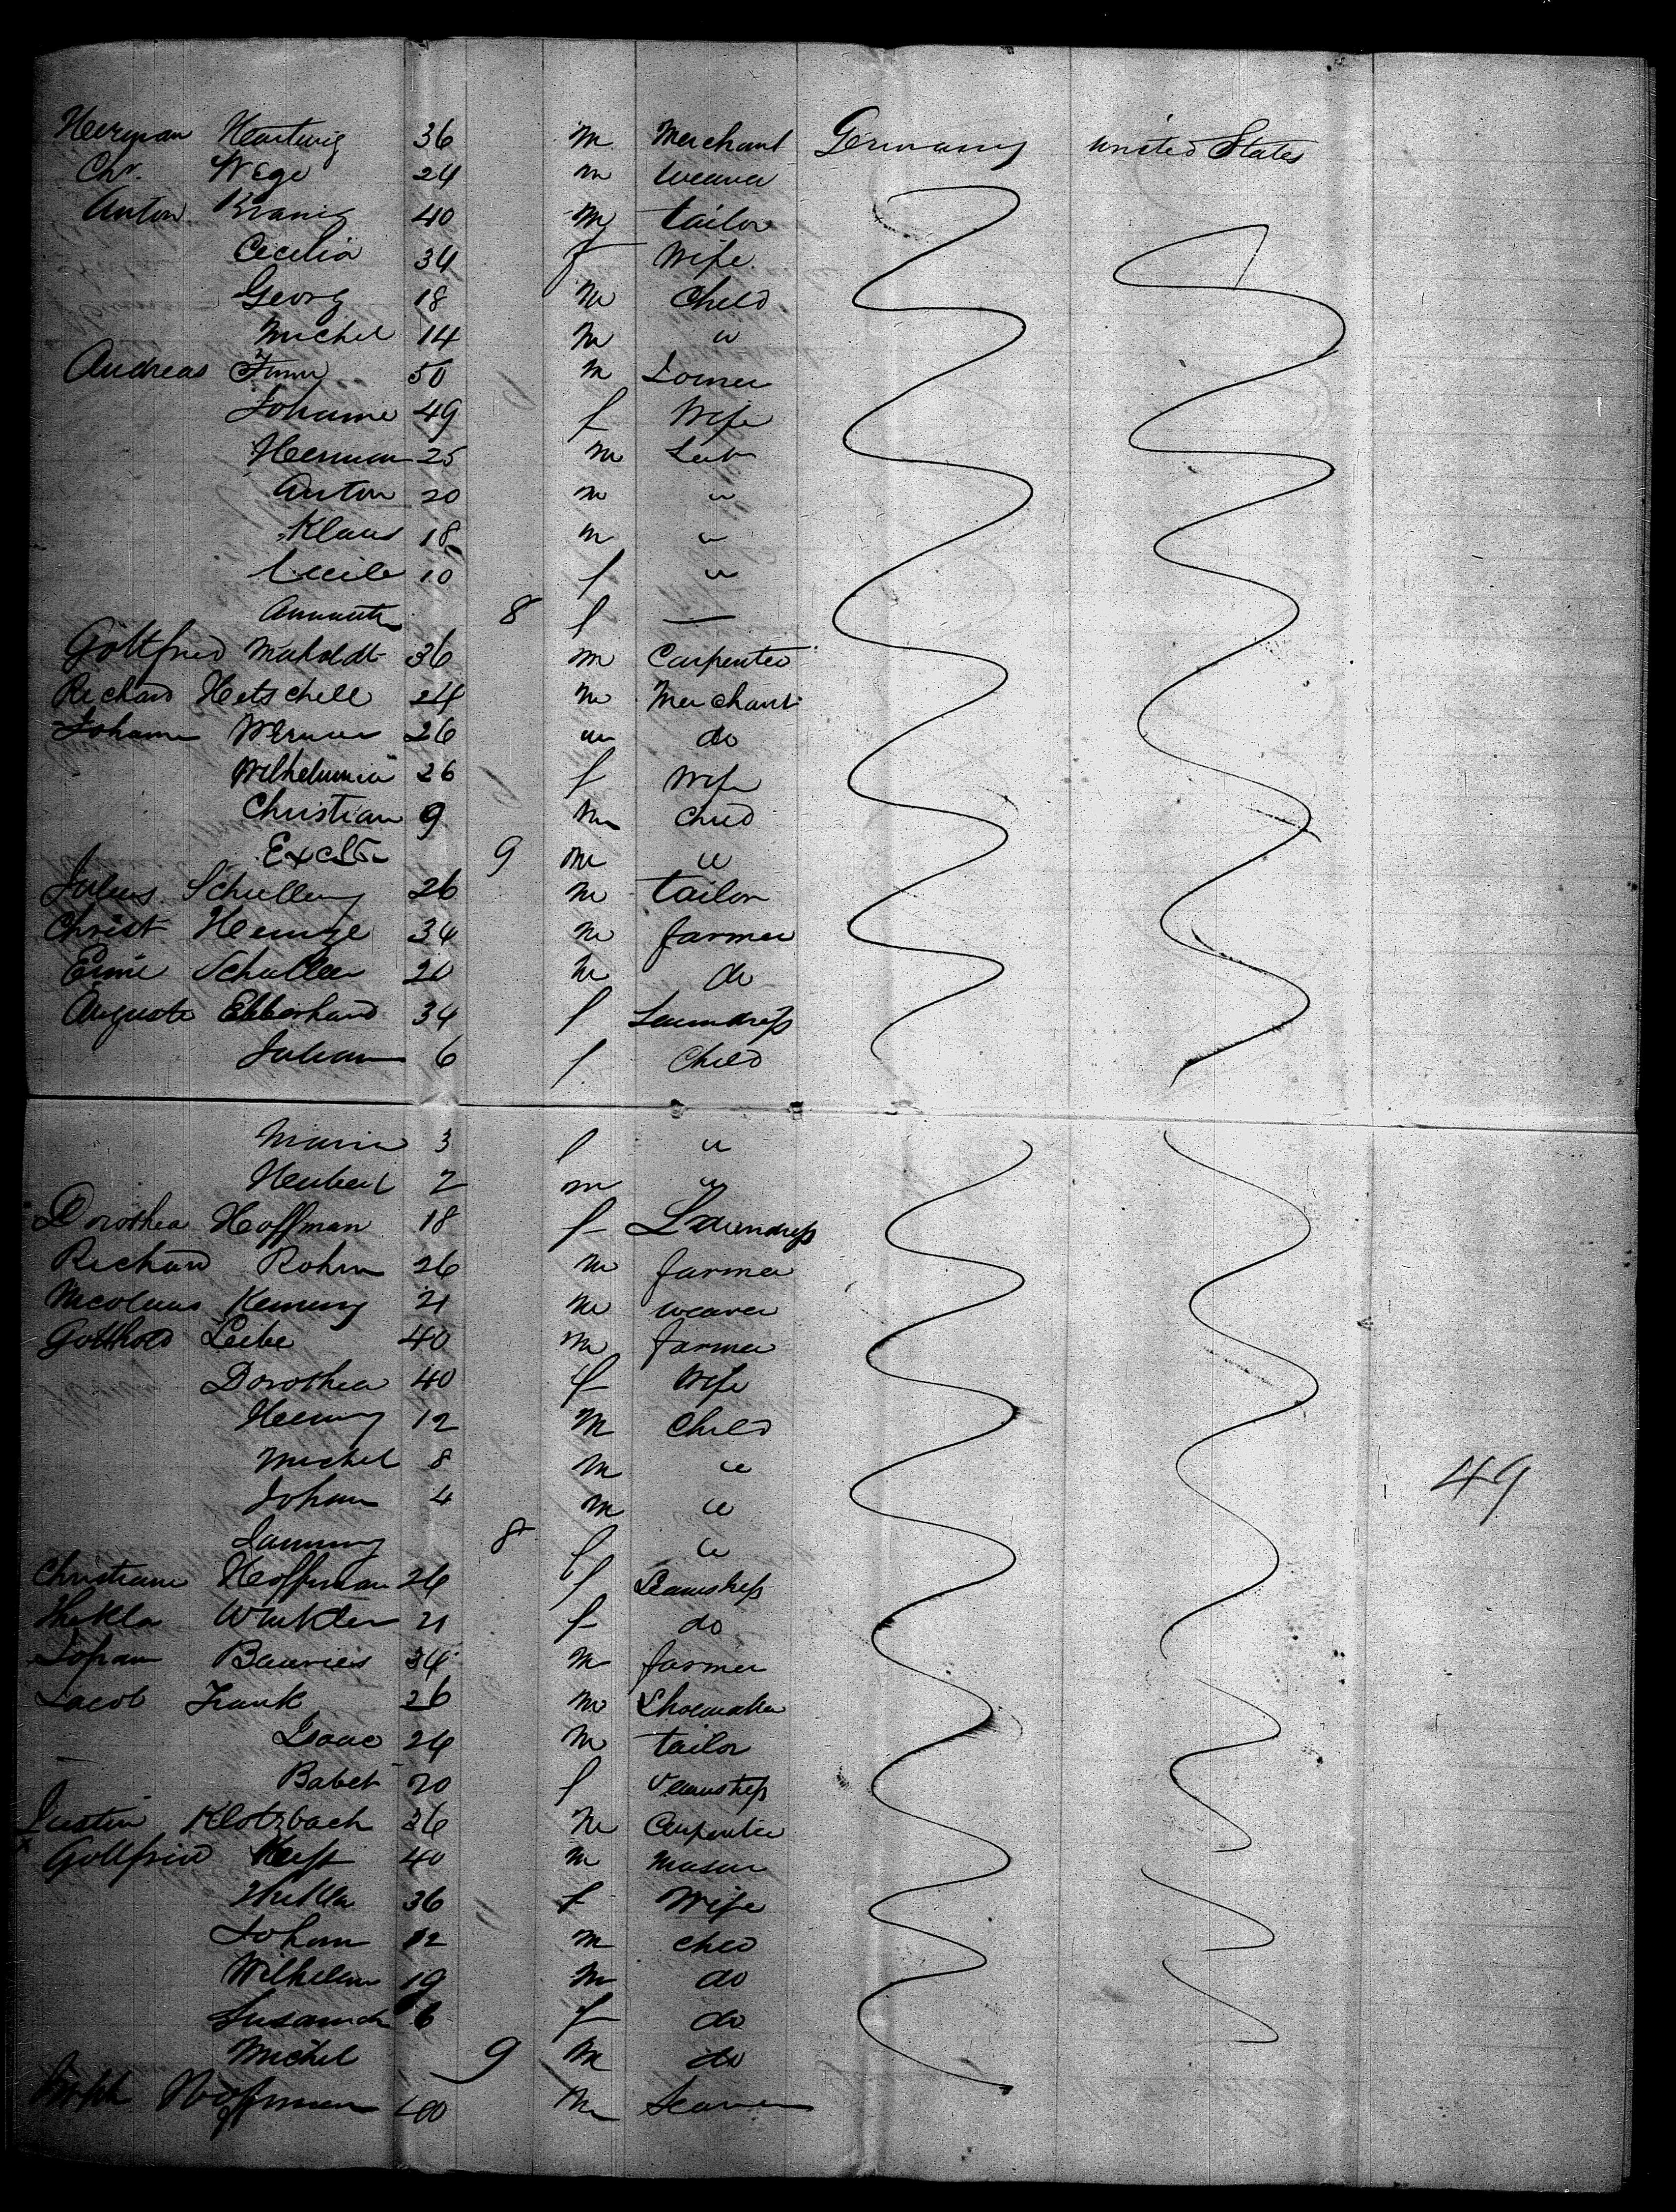 Herman Hartwig 36 m Merchant Germany United States
Chr. Wege 24 m weaver
Anton 40 m tailor
Cecilia 34 f Wife
Georg 18 m Child
Michel 14 m "
Andreas 50 m
Johanne 49 f Wife
Herman 25 m
Anton 20 m "
Klaus 18 m "
Cecile 10 f "
8 f —
Gottfried Maholdt 36 m Carpenter
Richard Hetschell 24 m Merchant
Johann Werner 26 m do
Wilhelmina 26 f Wife
Christian 9 m Child
9 m "
Julius Schelling 26 m tailor
Christ Heinze 34 m farmer
Schaller 20 m do
Auguste Ebberhard 34 f Laundress
6 f Child
Maria 3 f "
Herbert 2 m "
Dorothea Hoffman 18 f Laundress
Richard Rohm 26 m farmer
Nicolaus 21 m weaver
Gotthold Leibe 40 m farmer
Dorothea 40 f Wife
12 m Child
Michel 8 m "
Johan 4 m " 49
8 f "
Christiane Hoffman 26 f Seamstress
Thekla Winkler 21 f do
Johan 34 m farmer
Jacob Frank 26 m Shoemaker
Isaac 24 m tailor
Babet 20 f Seamstress
Justin Klotzbach 36 m Carpenter
Gottfried 40 m mason
Thekla 36 f Wife
Johan 12 m Child
Wilhelm 19 m do
Susannah 6 f do
Michel 9 m do
Hoffman 40 m